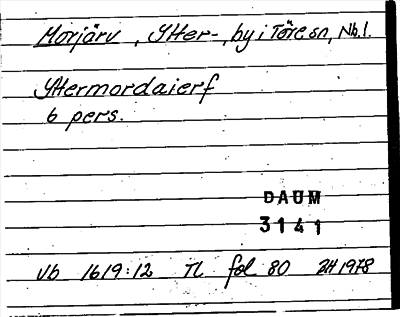 Morjärv, Ytter-, by i Töre sn, Nb.l.
Yttermordaierf
6 pers.
DAUM
3141
Vb 1619:12 TL fol 80 2H 1978